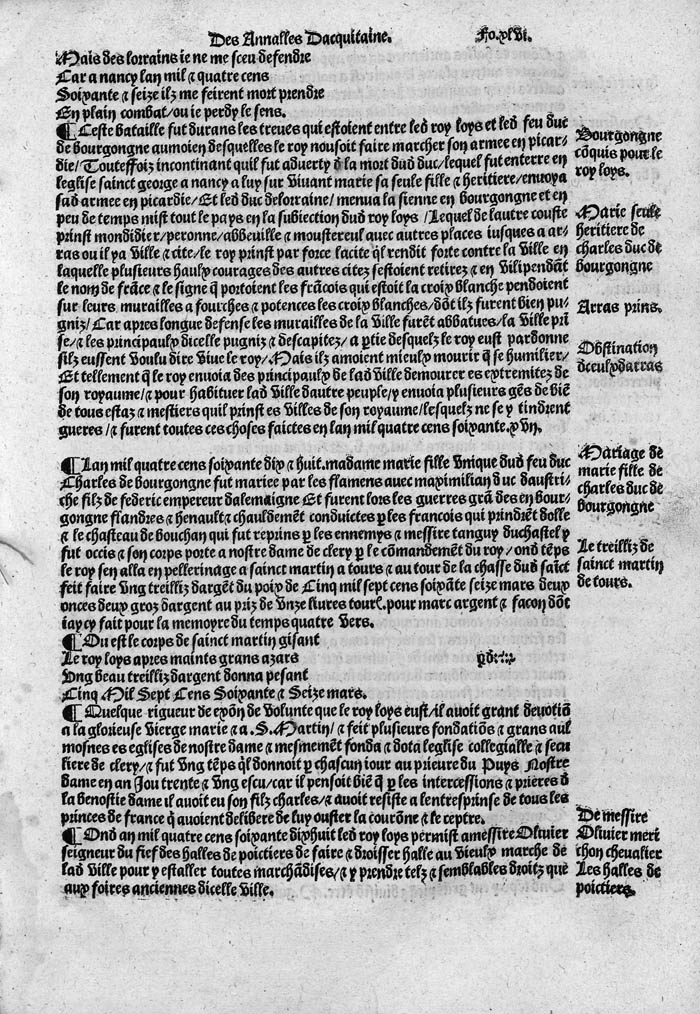 Des Annalles Dacquitaine. Fo.xlvi.
Mais des lorrains ie ne me sceu defendre
Car a nancy lan mil & quatre cens
Soixante & seize ilz me feirent mort prendre
En plain combat/ou ie perdy le sens.
¶ Ceste bataille fut durans les treues qui estoient entre led roy loys et led feu duc
de bourgongne aumoien desquelles le roy nousoit faire marcher son armee en picar/
die/Touteffoiz incontinant quil fut aduerty d la mort dud duc/lequel fut enterre en
leglise sainct george a nancy a luy sur viuant marie sa seule fille & heritiere/enuoya
sad armee en picardie/Et led duc delorraine/menua la sienne en bourgongne et en
peu de temps mist tout le pays en la subiection dud roy loys/Lequel de lautre couste
prinst mondidier/peronne/abbeuille & moustereul auec autres places iusques a ar/
ras ou il ya ville & cite/le roy prinst par force lacite q̃l rendit forte contre la ville en
laquelle plusieurs haulx courages des autres citez sestoient retirez & en vilipendãt
le nom de frãce & le signe q̃ portoient les frãcois qui estoit la croix blanche pendoient
sur leurs murailles a fourches & potences les croix blanches/dõt ilz furent bien pu/
gniz/Car apres longue defense les murailles de la ville furẽt abbatues/la ville prĩ
se/& les principaulx dicelle pugniz & descapitez/a ptie desquelz le roy eust pardonne
silz eussent voulu dire viue le roy/Mais ilz amoient mieulx mourir q̃ se humilier/
Et tellement q̃ le roy enuoia des principaulx de lad ville demourer es extremitez de
son royaume/& pour habituer lad ville dautre peuple/y enuoia plusieurs gẽs de biẽ
de tous estaz & mestiers quil prinst es villes de son royaume/lesquelz ne se y tindrent
gueres/& furent toutes ces choses faictes en lan mil quatre cens soixante.xvn.
¶ Lan mil quatre cens soixante dix & huit.madame marie fille vnique dud feu duc
Charles de bourgongne fut mariee par les flamens auec maximilian duc daustri/
che filz de federic empereur dalemaigne Et furent lors les guerres grã des en bour/
gongne flandres & henault & chauldemẽt conduictes p les francois qui prindrẽt dolle
& le chasteau de bouchan qui fut reprins p les ennemys & messire tanguy duchastel y
fut occis & son corps porte a nostre dame de clery p le cõmandemẽt du roy/ond tẽps
le roy sen alla en pellerinage a sainct martin a tours & au tour de la chasse dud sãict
feit faire vng treilliz dargẽt du poix de Cinq mil sept cens soixãte seize mars deux
onces deux groz dargent au priz de vnze liures tourl.pour marc argent & facon dõt
iay cy fait pour la memoyre du temps quatre vers.
¶ Ou est le corps de sainct martin gisant
Le roy loys apres maints grans azars
Vng beau treilliz dargent donna pesant
Cinq Mil Sept Cens Soixante & Seize mars.
¶ Quelque rigueur de exõn de volunte que le roy loys eust/il auoit grant deuotiõ
a la glorieuse vierge marie & a.S.Martin/& feit plusieurs fondatiõs & grans aul
mosnes es eglises de nostre dame & mesmemẽt fonda & dota leglise collegialle & secu
liere de clery/& fut vng tẽps q̃l donnoit p chascun iour au prieure du Puys Nostre
dame en an Jou trente & vng escu/car il pensoit biẽ q̃ p les intercessions & prieres d
la benoistie dame il auoit eu son filz charles/& auoit resiste a lentresprinse de tous les
princes de france q̃ auoient delibere de luy ouster la courõne & le ceptre.
¶ Ond an mil quatre cens soixante dixhuit led roy loys permist amessire Oliuier
seigneur du fief des halles de poictiers de faire & droisser halle au vieulx marche de
lad ville pour y estaller toutes marchãdises/& y prendre telz & semblables droitz que
aux foires anciennes dicelle ville.
Bourgongne
cõquis pour le
roy loys.
Marie seule
heritiere de
charles duc de
bourgongne
Arras prins.
Obstination
dceulxdarras
Mariage de
marie fille de
charles duc de
bourgongne
Le treilliz de
sainct martin
de tours.
De messire
Oliuier meri
chon cheualier
Les halles de
poictiers.